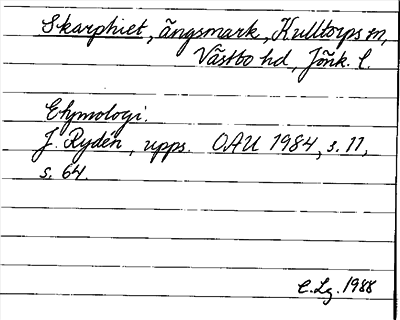 Skarphiet, ängsmark, Kulltorps sn,
Västbo hd, Jönk. l.
Etymologi.
J. Rydén, upps. OAU 1984, s. 11,
s. 64.
C.Lg. 1988